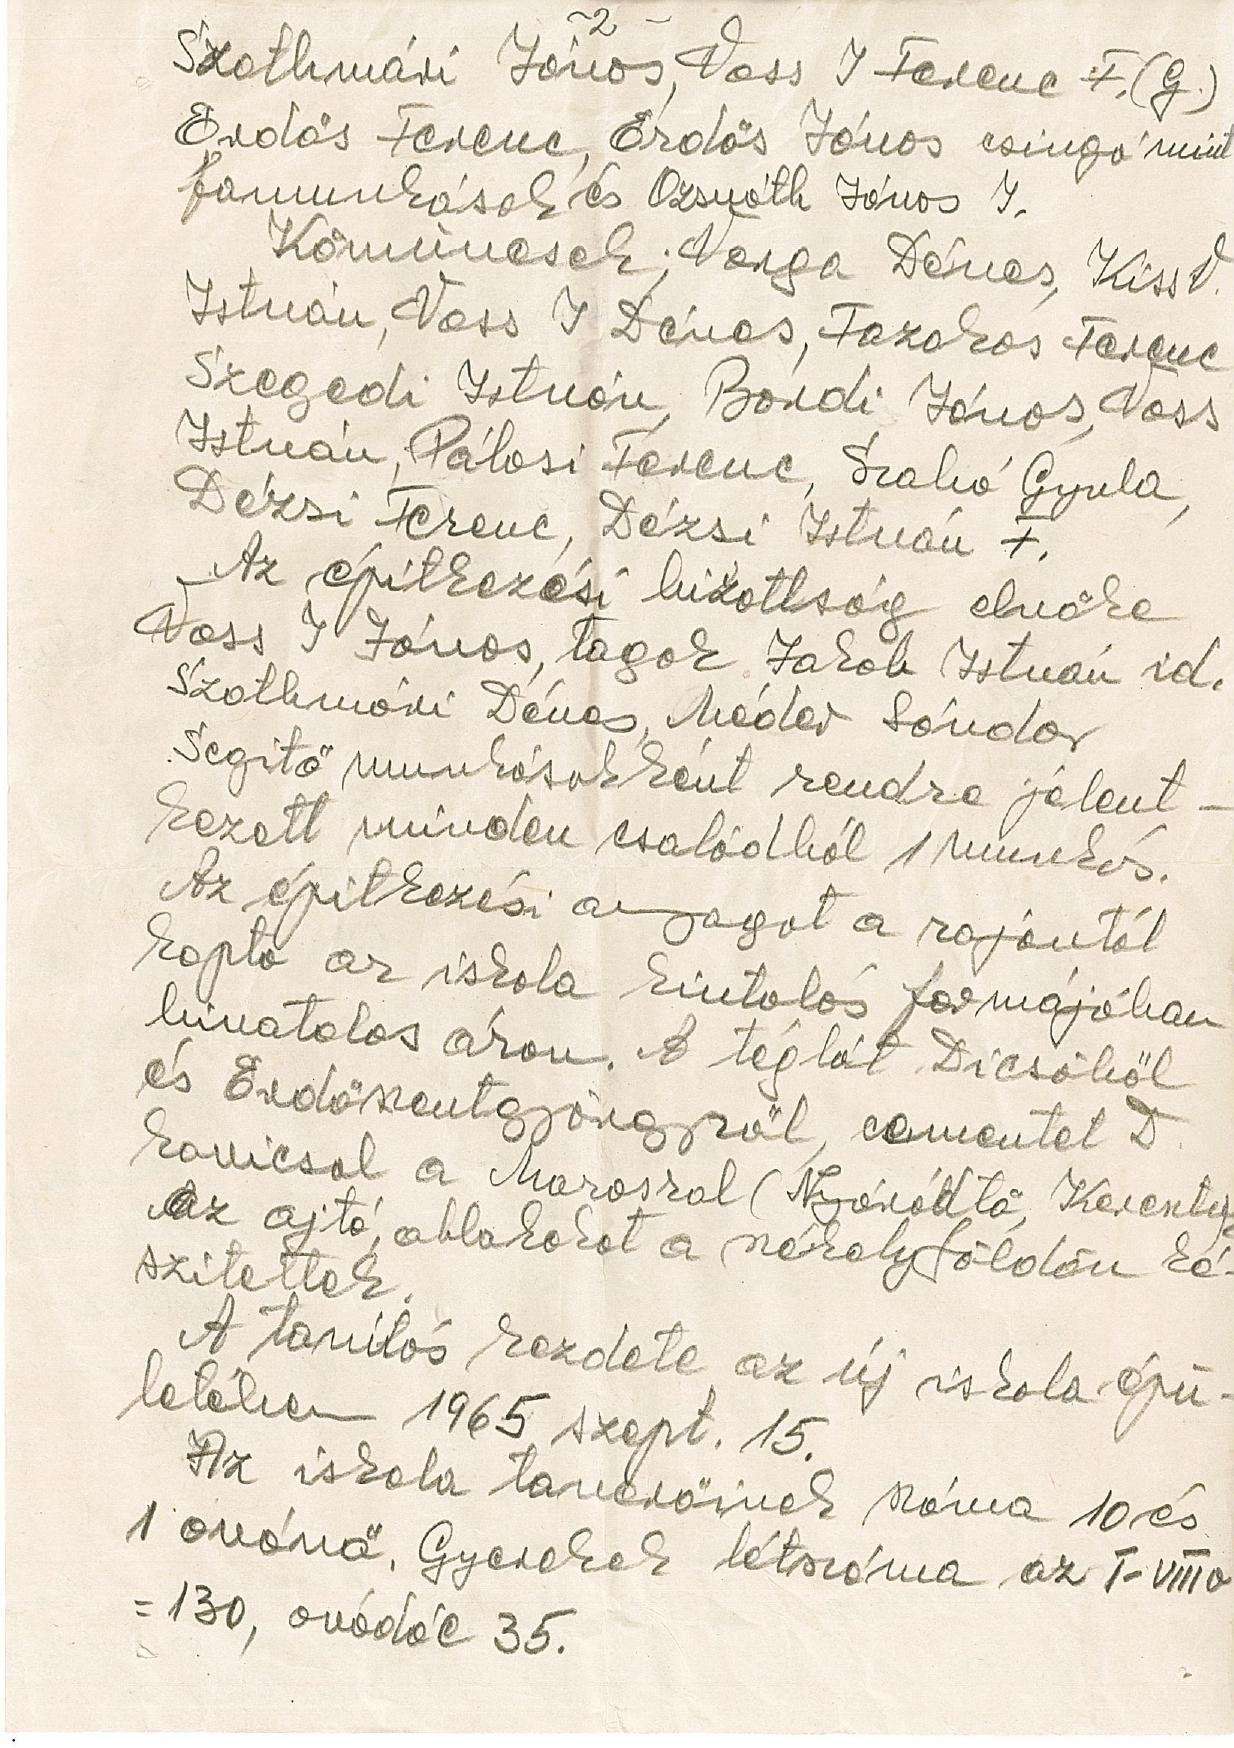 -2-
Szathmári János, Vass I Ferenc F. (G.)
Erdős Ferenc, Erdős János csingó mint
famunkások és Ozsváth János I.
Kőművesek; Varga Dénes, Kiss V.
István, Vass I Dénes, Fazakas Ferenc
Szegedi István, Bándi János, Vass
István, Pálosi Ferenc, Szabó Gyula,
Dézsi Ferenc, Dézsi István F.
Az épitkezési bizottság elnöke
Vass I János, tagok Jakab István id.
Szathmári Dénes, Méder Sándor
Segitő munkásokként rendre jelent-
kezett minden családból 1 munkás.
Az épitkezési anyagot a rajontól
kapta az iskola kiutalás formájában
hivatalos áron. A téglát Dicsőből
és Erdőszentgyörgyről, cementet D.
kavicsal a Marosról (Nyárádtő, Kerenty
Az ajtó, ablakokat a székelyföldön ké-
szitettek.
A tanitás kezdete az új iskola épü-
letében 1965 szept. 15.
Az iskola tanerőinek száma 10 és
1 ovónő. Gyerekek létszáma az I-VIII o
= 130, ovódás 35.